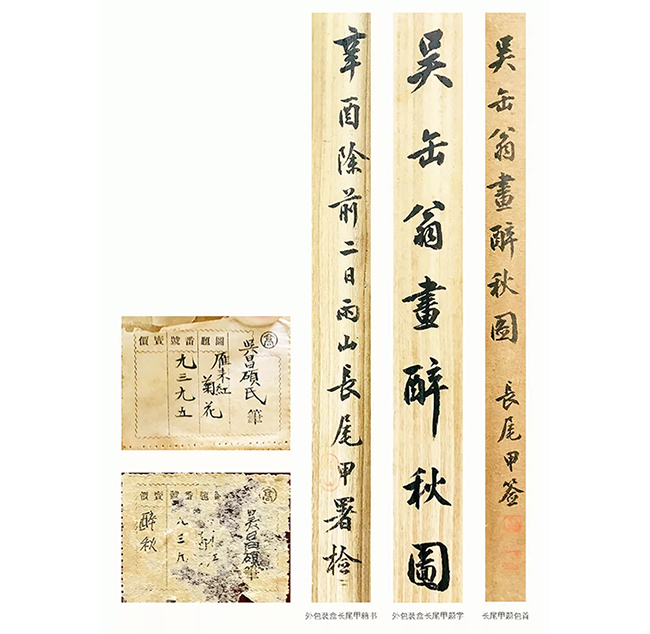 吴缶翁畫醉秋圖 長尾甲签
吴缶翁畫醉秋圖
辛酉除前二日雨山長尾甲署檢
圖題 番號 賣價
吳昌碩氏筆
雁来紅
菊花
九三九五
番號 賣價
吳昌碩筆
八三
醉秋
外包装盒长尾甲
外包装盒长尾甲题字
长尾甲题包首